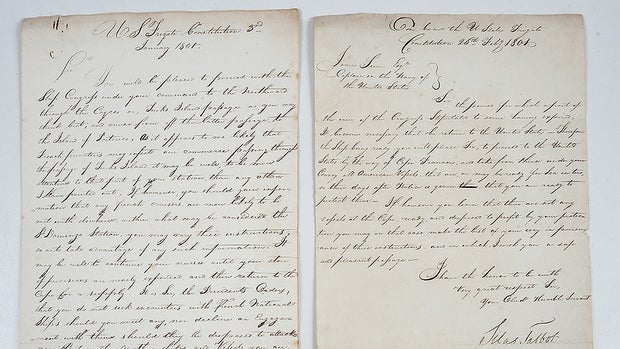 U S Frigate Constitution 3d
January 1801
Sir
You will be pleased to proceed with the
Ship Congress under your command to the Northward
through the Caycos or Turks Island passage as you may
think best, and cruise from off the latter passage to
the Island of as it appears to me likely that
French privateers may infest our commerce passing through
the passage of Turks Island it may be well, to be more
attentive to that part of your Station than any other
particular part. If however you should gain infor-
mation that any french cruisers are more likely to be
met with elsewhere, within what may be considered the
St Domingo Station, you may vary these instructions,
so as to take advantage of any such information. It
may be well to continue your cruise until your stock
of provisions are nearly expended and then return to the
Cape for a supply. It is the Presidents Orders,
that you do not seek encounters with french National
Ships should you meet any, nor decline an Engage
ment with them should they be disposed to attack
On board the U States Frigate
Constitution 26th Feby 1801
James Sever Esqr
Captain in the Navy of
the United States
Sir
The period for which a part of
the crew of the Congress Ship having expired,
it becomes necessary that she return to the United States
the Ship being ready you will please Sir to proceed to the United
States by the way of Cape Francois, and take from thence under your
Convoy all American Vessels, that are or may be ready for sea within
three days after Notice is given that you are ready to
protect them. If however you learn that there are not any
vessels at the Cape, ready and disposed to profit by your protec
tion you may in that case make the best of your way in pursu
ance of these instructions and in which I wish you a safe
and pleasant passage
I have the honor to be with
Very great respect Sir
Your Obedt Humble Servant
Silas Talbot